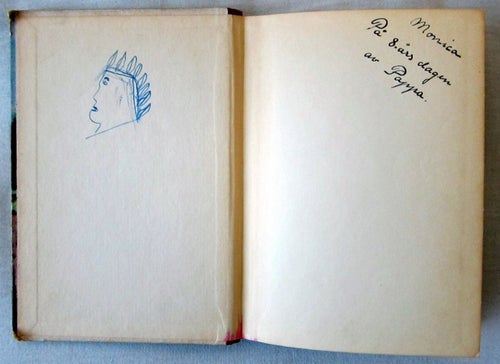 Monica
På 8.års dagen
av Pappa.